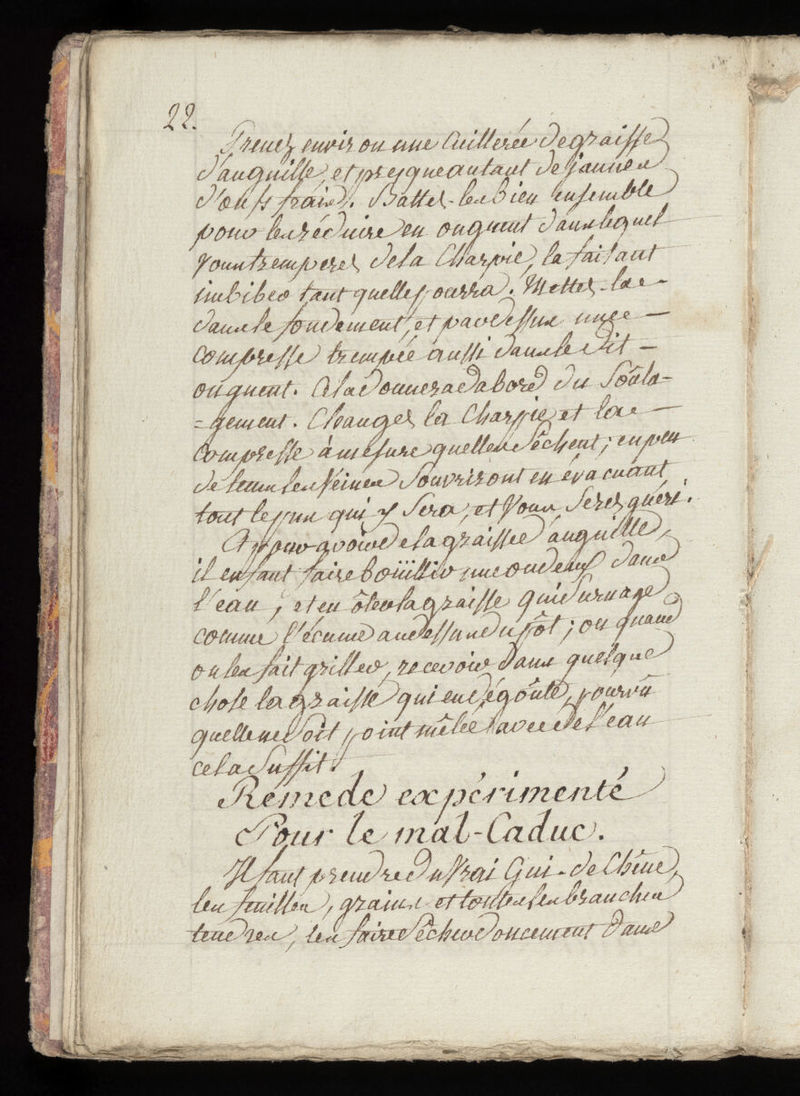 22.
Prenez environ une Cuillerée de graisse
d'anguille, et presque autant de jaunes
d'œufs frais. Battez-les bien ensemble
pour les réduire en onguent dans lequel
vous tremperez de la Charpie, la faisant
imbiber tant quelle pourra. Mettez-la
dans le fondement, et par dessus une
compresse trempée aussi dans le dit
onguent. Cela donnera dabord du Soûla-
=gement. Changez la Charpie et la
compresse à mesure quelles Sêchent; en peu
de tems les veines Souvriront en évacuant
tout le pus qui y Sera, et Vous Serez guéri.
Et pour avoir de la graisse d'anguille,
il en faut faire boüillir une ou deux dans
l'eau, et en ôter la graisse qui Surnage
comme l'écume au dessus du pôt; ou quand
on les fait griller, recevoir dans quelque
chose la graisse qui en dégoûte, pourvû
quelle ne Soit point mêlée avec de l'eau
cela Suffit.
Remede expérimenté
Pour le mal-Caduc.
Il faut prendre du Vrai Gui-de Chêne,
les feuilles, graines et toutes les branches
tendres, les faire Sêcher doucement dans